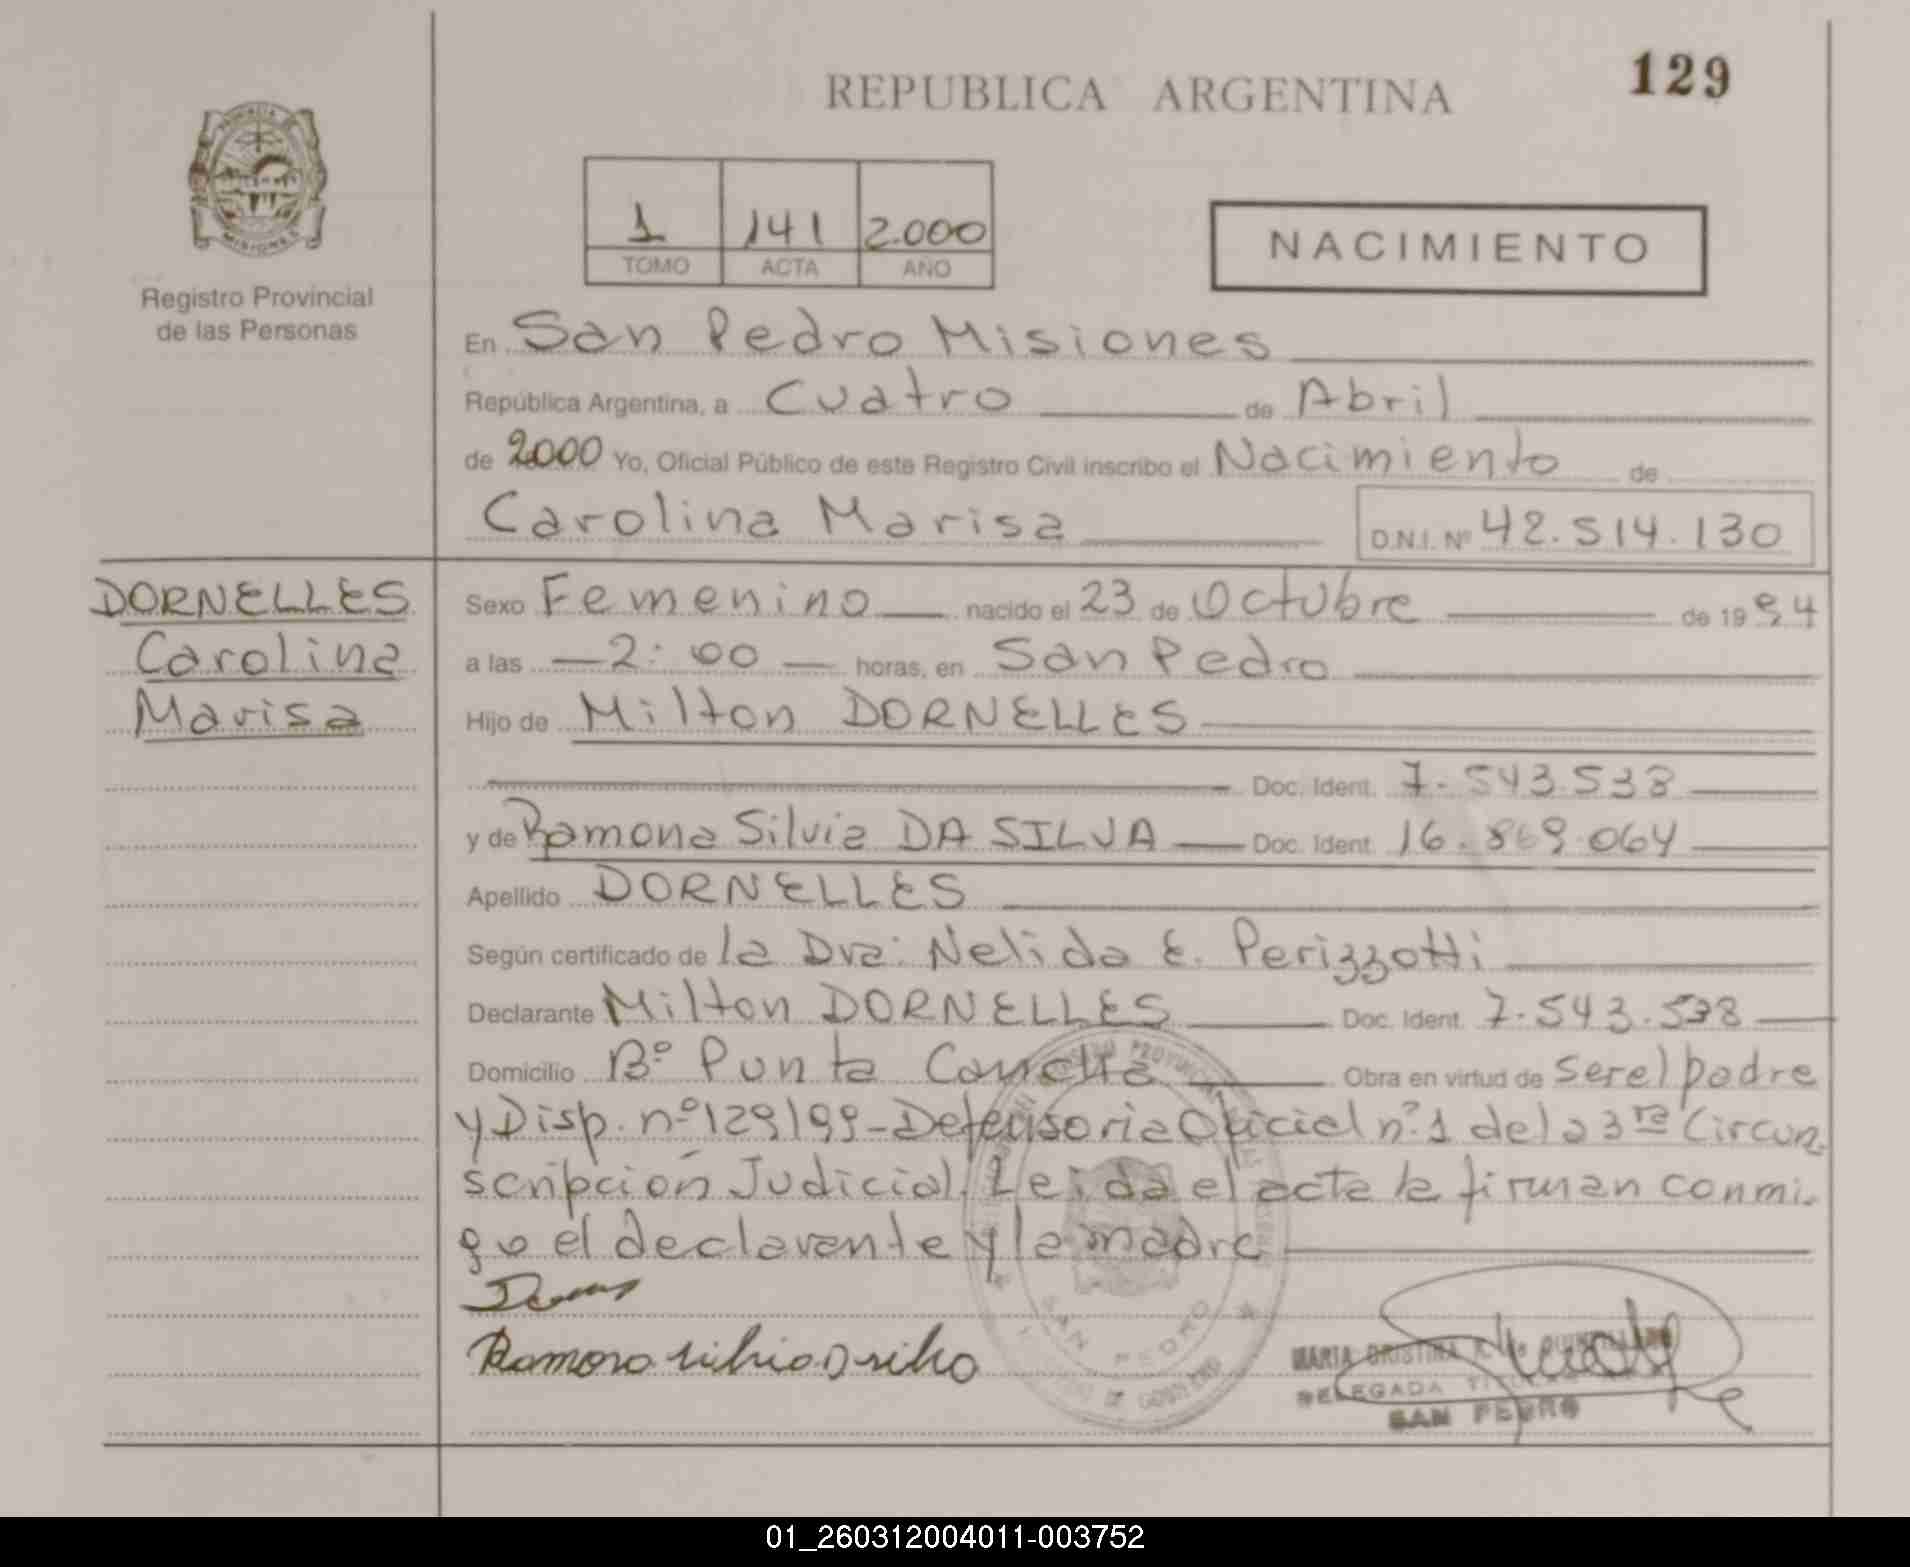 129
REPUBLICA ARGENTINA
PROVINCIA DE
MISIONES
Registro Provincial
de las Personas
1 141 2.000
TOMO ACTA AÑO
NACIMIENTO
En San Pedro Misiones
República Argentina, a Cuatro de Abril
de 2000 Yo, Oficial Público de este Registro Civil inscribo el Nacimiento de
Carolina Marisa D.N.I. Nº 42.514.130
DORNELLES
Carolina
Marisa
Sexo Femenino nacido el 23 de Octubre de 1994
a las 2:00 horas, en San Pedro
Hijo de Milton DORNELLES
Doc. Ident. 7.543.538
y de Ramona Silvia DA SILVA Doc. Ident. 16.869.064
Apellido DORNELLES
Según certificado de la Dra: Nelida E. Perizzotti
Declarante Milton DORNELLES Doc. Ident. 7.543.538
Domicilio Bº Punta Cancha Obra en virtud de ser el padre
y Disp. nº 129/99-Defensoria Oficial nº 1 de la 3ra Circun-
scripción Judicial. Leida el acta la firman conmi-
go el declarante y la madre
SAN PEDRO
MARIA CRISTINA
DELEGADA TITULAR
SAN PEDRO
01_260312004011-003752